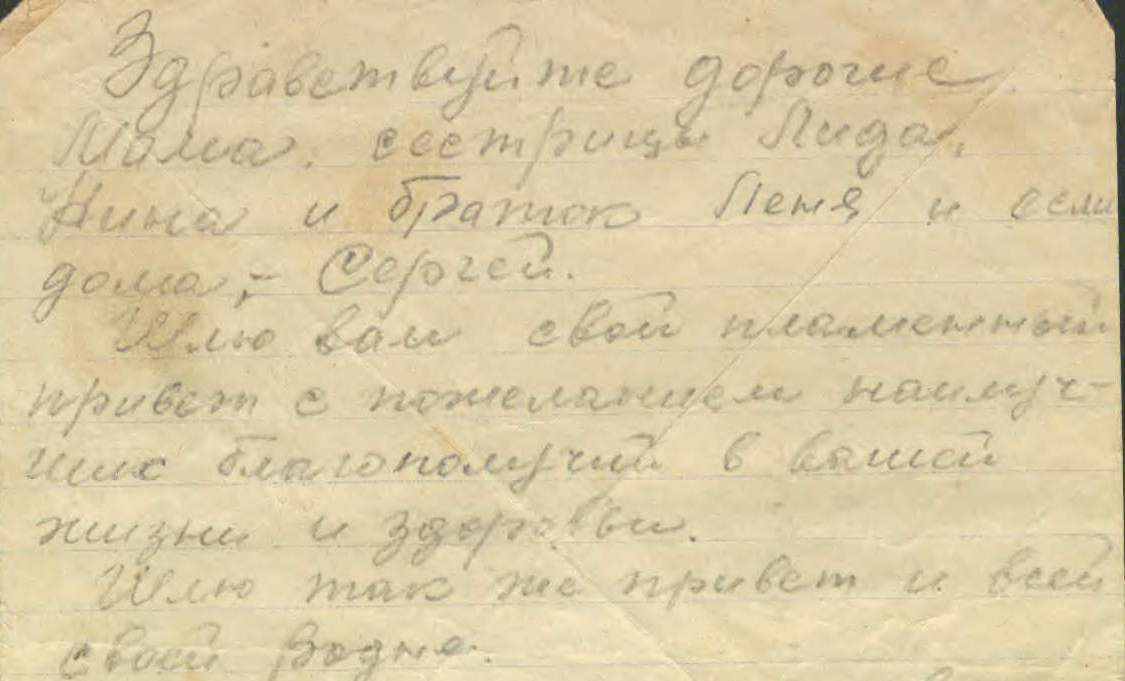 Здравствуйте дорогие
Мама, сестрицы Лида,
Нина и браток Леня и если
дома, - Сергей.
Шлю вам свой пламенный
привет с пожеланием наилуч-
ших благополучий в вашей
жизни и здоровьи.
Шлю так же привет и всей
своей Родне.